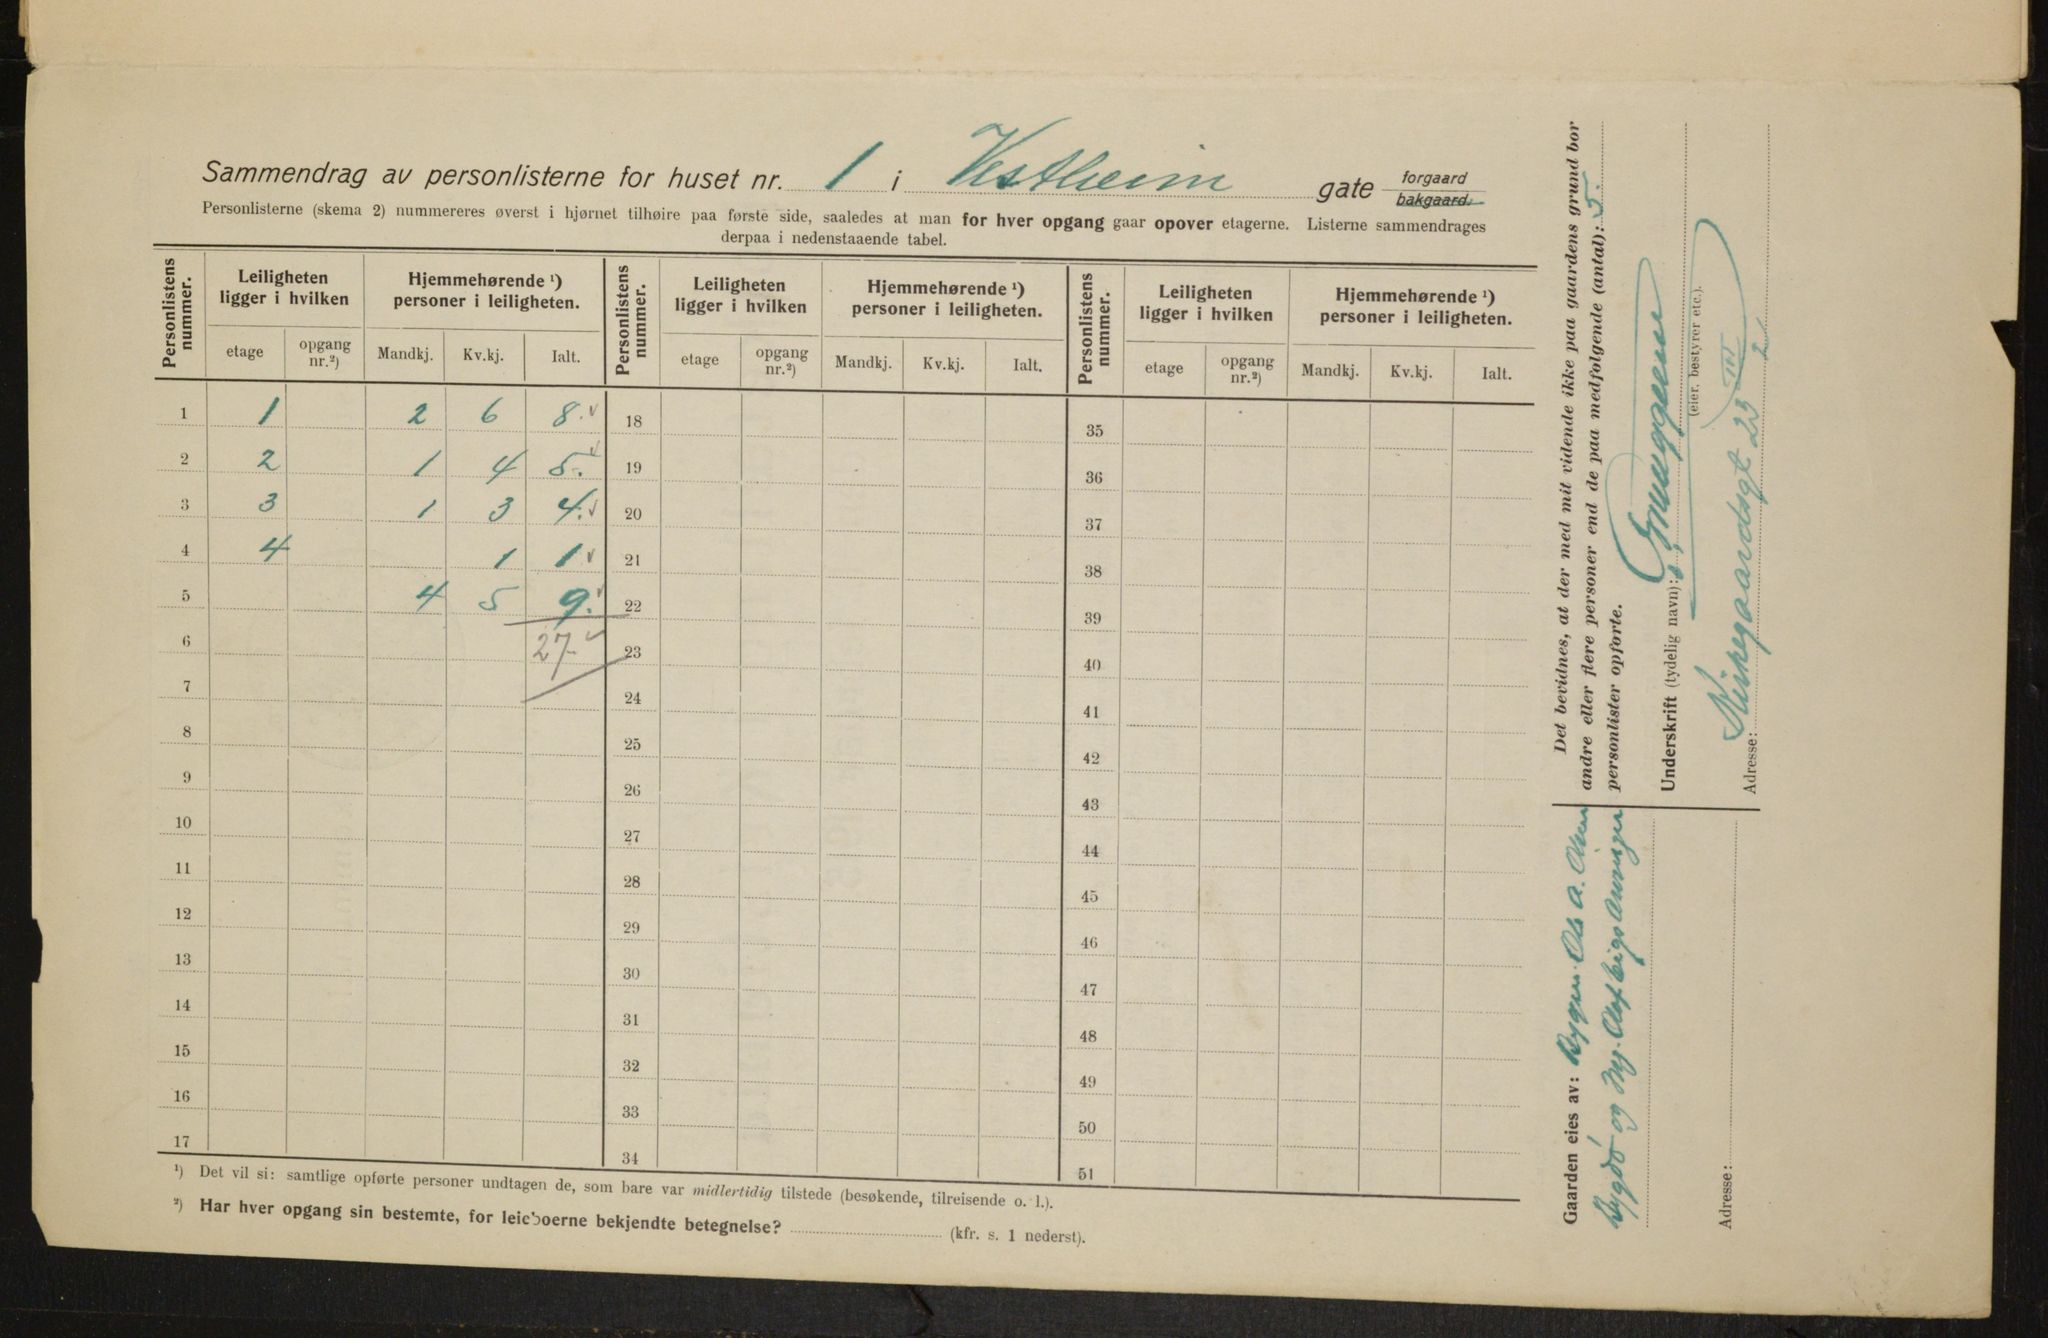 Sammendrag av personlisterne for huset nr. 1 i Vestheim gate forgaard bakgaard.
Personlisterne (skema 2) nummereres øverst i hjørnet tilhøire paa første side, saaledes at man for hver opgang gaar opover etagerne. Listerne sammendrages
derpaa i nedenstaaende tabel.
Personlistens nummer. Leiligheten ligger i hvilken Hjemmehørende ¹) personer i leiligheten. Personlistens nummer. Leiligheten ligger i hvilken Hjemmehørende ¹) personer i leiligheten. Personlistens nummer. Leiligheten ligger i hvilken Hjemmehørende ¹) personer i leiligheten.
etage opgang nr.²) Mandkj. Kv.kj. Ialt. etage opgang nr.²) Mandkj. Kv.kj. Ialt. etage opgang nr.²) Mandkj. Kv.kj. Ialt.
1 1 2 6 8. 18 35
2 2 1 4 5. 19 36
3 3 1 3 4. 20 37
4 4 1 1 21 38
5 4 5 9. 22 39
6 27 23 40
7 24 41
8 25 42
9 26 43
10 27 44
11 28 45
12 29 46
13 30 47
14 31 48
15 32 49
16 33 50
17 34 51
¹) Det vil si: samtlige opførte personer undtagen de, som bare var midlertidig tilstede (besøkende, tilreisende o. l.).
²) Har hver opgang sin bestemte, for leieboerne bekjendte betegnelse? (kfr. s. 1 nederst).
Det bevidnes, at der med mit vidende ikke paa gaardens grund bor
andre eller flere personer end de paa medfølgende (antal): 5.
personlister opførte.
Underskrift (tydelig navn):
(eier, bestyrer etc.).
Adresse: Kirkegaardsgt 23 III
Gaarden eies av: Bygm. Ole A.
Bygdø og
Adresse: